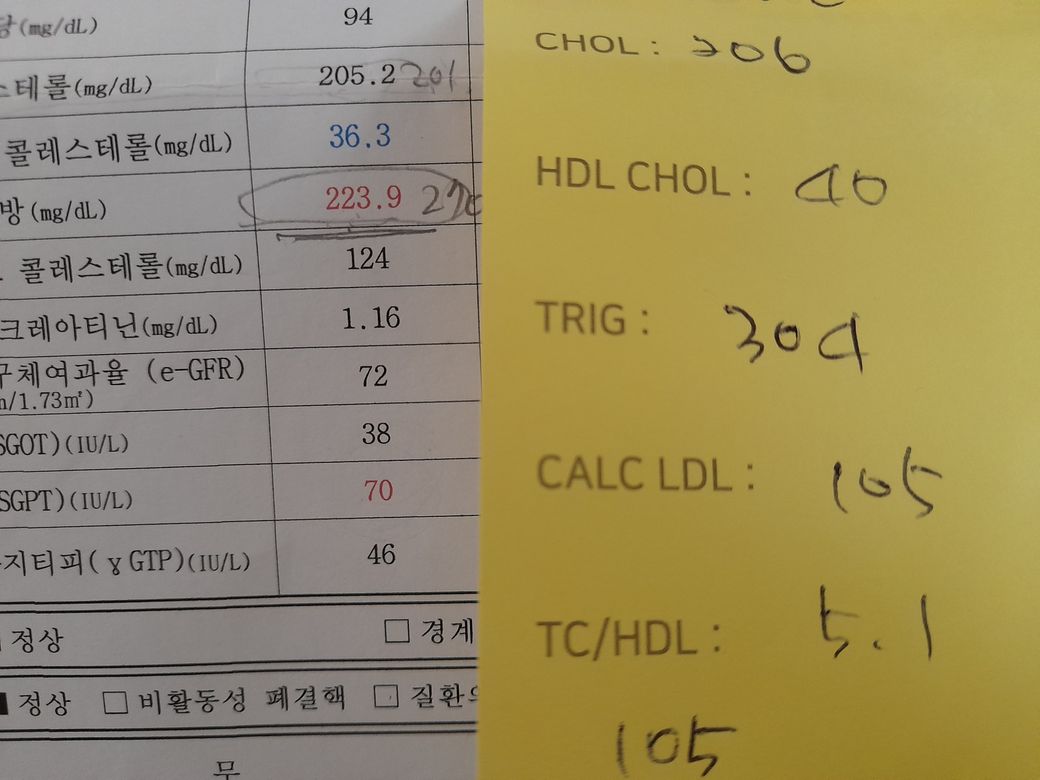 당(mg/dL) 94
스테롤(mg/dL) 205.2 201
콜레스테롤(mg/dL) 36.3
방(mg/dL) 223.9
콜레스테롤(mg/dL) 124
크레아티닌(mg/dL) 1.16
구체여과율 (e-GFR) 72
/1.73㎡)
SGOT)(IU/L) 38
SGPT)(IU/L) 70
지티피(γGTP)(IU/L) 46
정상 □ 경계
■ 정상 □ 비활동성 폐결핵 □ 질환의
무
CHOL : 206
HDL CHOL : 40
TRIG : 304
CALC LDL : 105
TC/HDL : 5.1
105